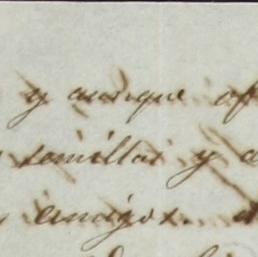 y aunque of
semillas y a
amigos.